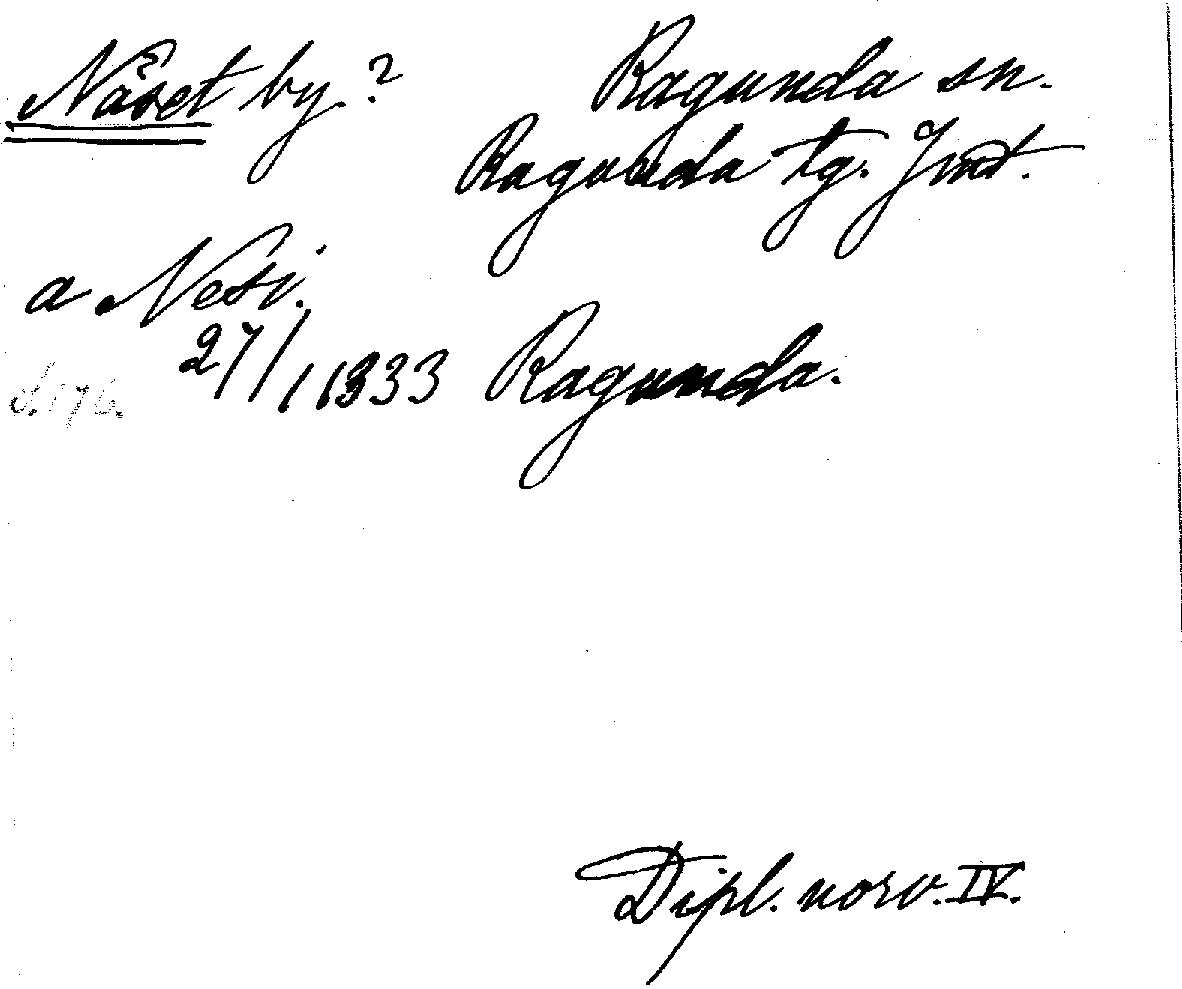 Nåset by.? Ragunda sn.
Ragunda tg. Jmt.
a Nesi.
27/1 1333 Ragunda.
s. 176.
Dipl. norv. IV.